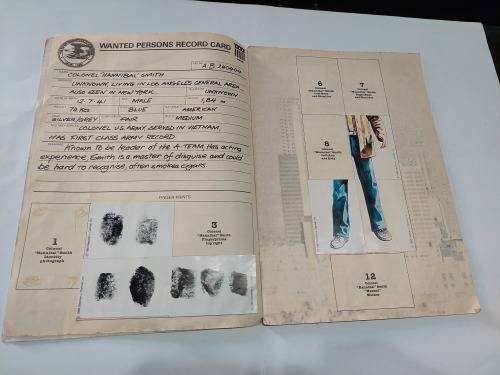 WANTED PERSONS RECORD CARD
COLONEL "HANNIBAL" SMITH
UNKNOWN, LIVING IN LOS ANGELES GENERAL AREA
ALSO SEEN IN NEW YORK. UNKNOWN
12.7.41 MALE 1,84 m
76 KG BLUE AMERICAN
SILVER/GREY FAIR MEDIUM
COLONEL U.S. ARMY, SERVED IN VIETNAM,
HAS FIRST CLASS ARMY RECORD
Known to be leader of the A-TEAM, Has acting
experience, Smith is a master of disguise and could
be hard to recognise, often smokes cigars.
FINGER PRINTS
1
Colonel
"Hannibal" Smith
Identity
photograph
3
Colonel
"Hannibal" Smith
Fingerprints
top right
6
Colonel
"Hannibal" Smith
7
Colonel
"Hannibal" Smith
8
Colonel
"Hannibal" Smith
12
Colonel
"Hannibal" Smith
"Wanted"
Sticker